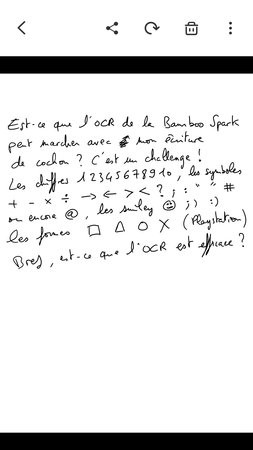 Est-ce que l'OCR de la Bamboo Spark
peut marcher avec mon écriture
de cochon ? C'est un challenge !
Les chiffres 12345678910, les symboles
+ - × ÷ → ← > < ? ; : " " #
ou encore @, les smiley ☺ ;) :)
les formes □ △ ○ × (Playstation)
Bref, est-ce que l'OCR est efficace ?